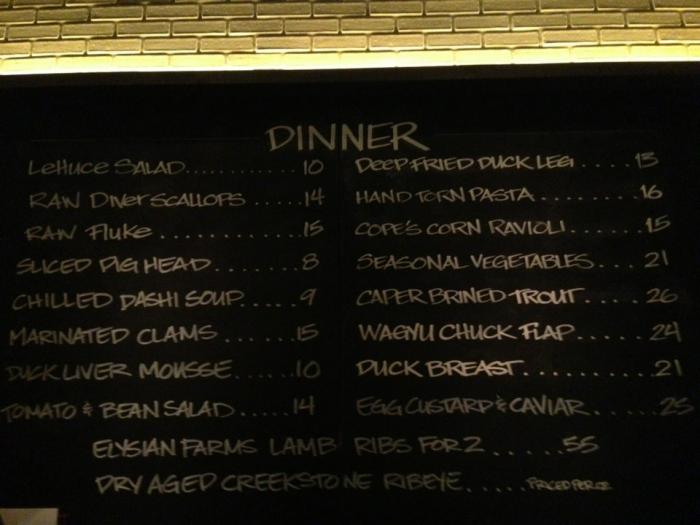 DINNER
LETTUCE SALAD............10
RAW DIVER SCALLOPS......14
RAW FLUKE..............15
SLICED PIG HEAD........8
CHILLED DASHI SOUP.....9
MARINATED CLAMS.......15
DUCK LIVER MOUSSE......10
TOMATO & BEAN SALAD.....14
DEEP FRIED DUCK LEG.....13
HAND TORN PASTA.........16
COPE'S CORN RAVIOLI.....15
SEASONAL VEGETABLES....21
CAPER BRINED TROUT.....26
WAGYU CHUCK FLAP.......24
DUCK BREAST...........21
EGG CUSTARD & CAVIAR......25
ELYSIAN FARMS LAMB RIBS FOR 2......55
DRY AGED CREEKSTONE RIBEYE.....PRICED PER OZ